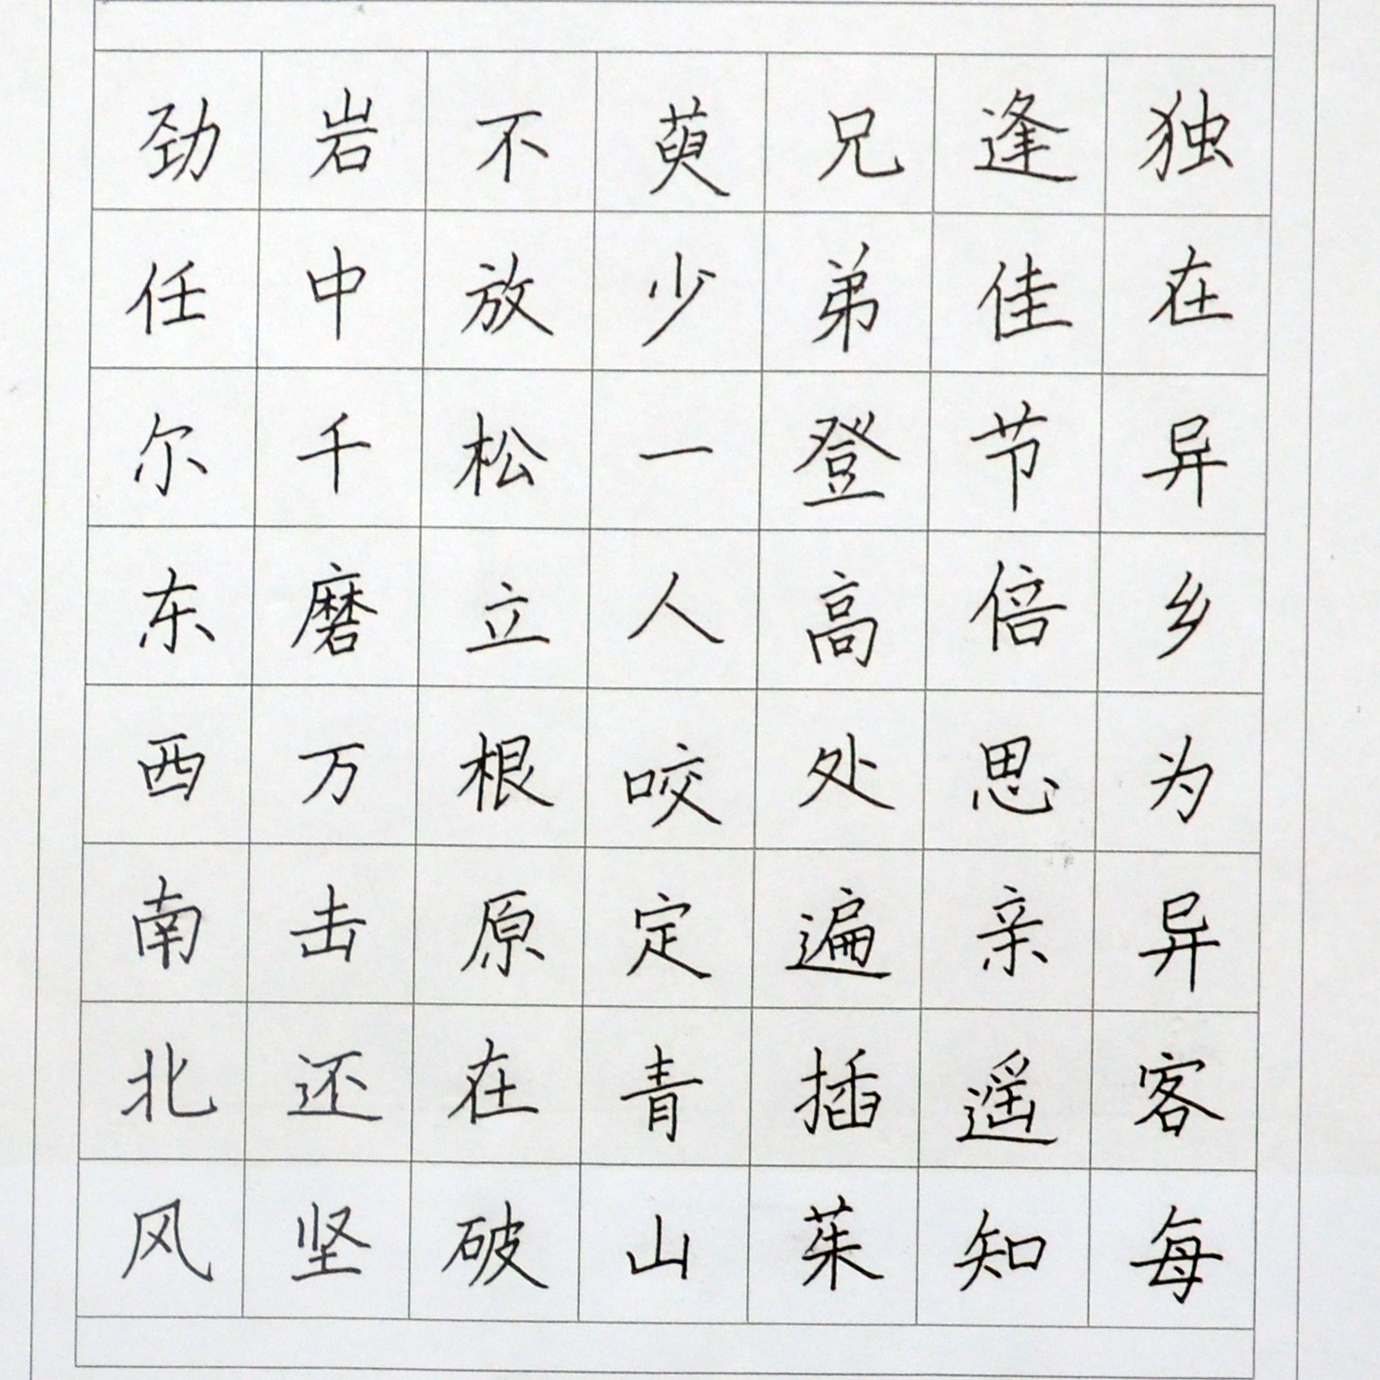 独在异乡为异客每
逢佳节倍思亲遥知
兄弟登高处遍插茱
萸少一人咬定青山
不放松立根原在破
岩中千磨万击还坚
劲任尔东西南北风